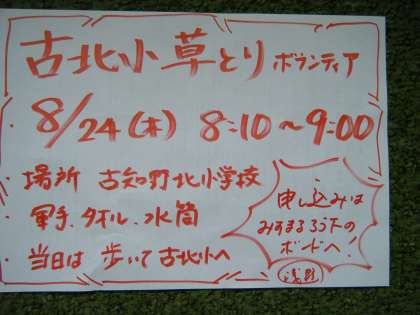 古北小草とり ボランティア
8/24(木) 8:10〜9:00
・場所 古知野北小学校
・軍手、タオル、水筒
・当日は 歩いて 古北小へ
申し込みは
みすまるろう下の
ボードへ!